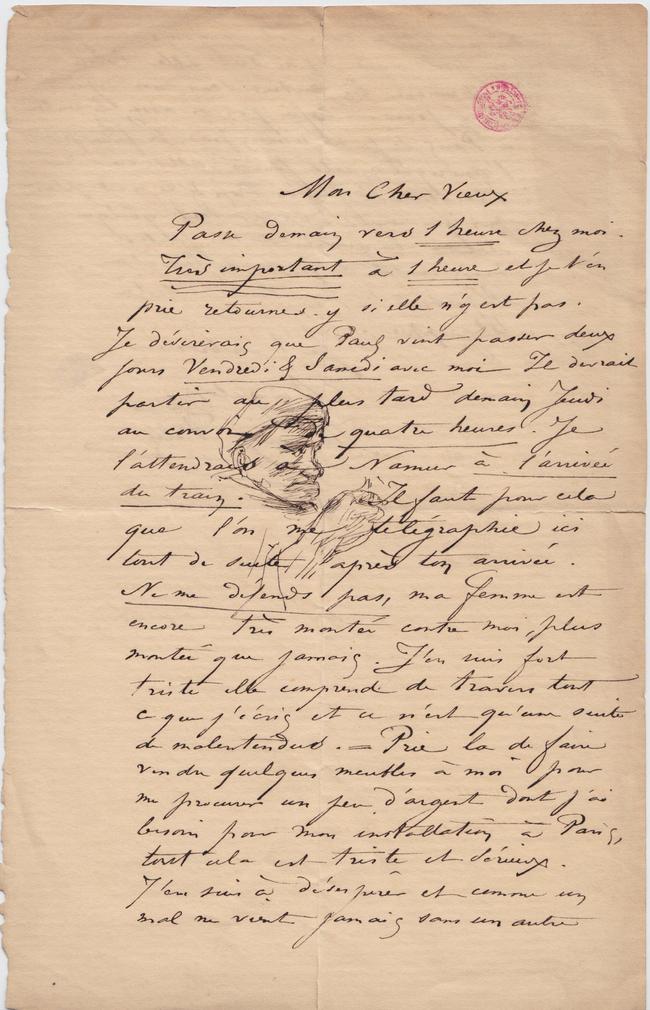 Mon Cher Vieux
Passe demain vers 1 heure chez moi.
Très important à 1 heure et je t'en
prie retournes-y si elle n'y est pas.
Je désirerais que Paul vint passer deux
jours Vendredi & Samedi avec moi Il devrait
partir au plus tard demain Jeudi
au convoi quatre heures. Je
l'attendrais à Namur à l'arrivée
du train. Il faut pour cela
que l'on me télégraphie ici
tout de suite après ton arrivée.
Ne me défends pas, ma femme est
encore très montée contre moi, plus
montée que jamais. J'en suis fort
triste elle comprend de travers tout
ce que j'écris et ce n'est qu'une suite
de malentendus. = Prie la de faire
vendre quelques meubles à moi pour
me procurer un peu d'argent dont j'ai
besoin pour mon installation à Paris,
tout cela est triste et sérieux.
J'en suis à désespérer et comme un
mal ne vient jamais sans un autre